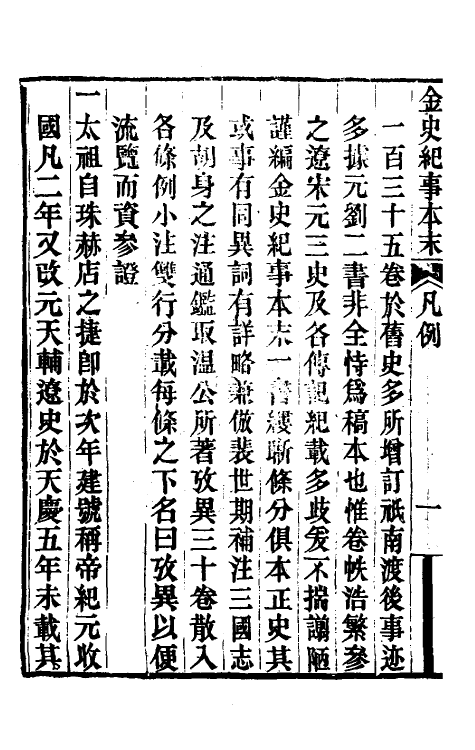 金史紀事本末 凡例 一
一百三十五卷於舊史多所增訂祇南渡後事迹
多據元劉二書非全恃爲稿本也惟卷帙浩繁參
之遼宋元三史及各傳記紀載多歧爰不揣譾陋
謹編金史紀事本末一書縷晣條分俱本正史其
或事有同異詞有詳略兼倣裴世期補注三國志
及胡身之注通鑑取温公所著攷異三十卷散入
各條例小注雙行分載每條之下名曰攷異以便
流覽而資參證
一太祖自珠赫店之捷卽於次年建號稱帝紀元收
國凡二年又改元天輔遼史於天慶五年未載其